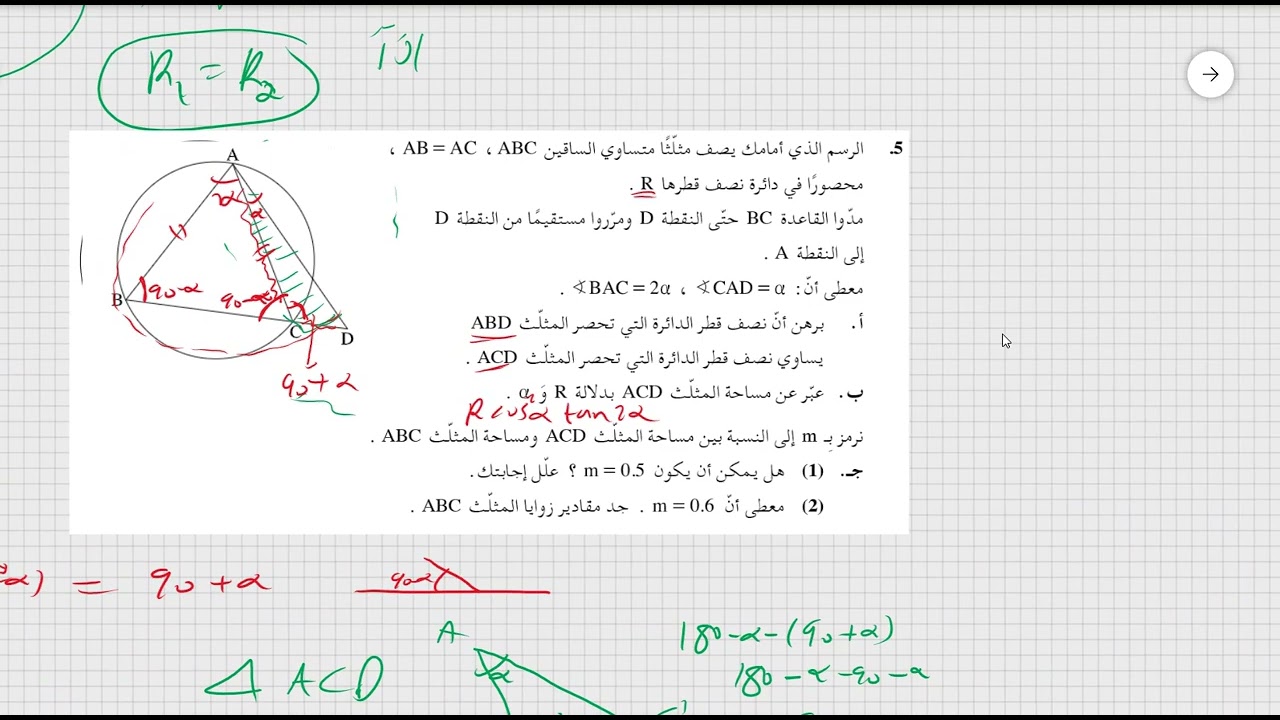 R₁ = R₂
5. الرسم الذي أمامك يصف مثلّثًا متساوي الساقين ABC ، AB = AC ،
محصورًا في دائرة نصف قطرها R .
مدّوا القاعدة BC حتّى النقطة D ومرّروا مستقيمًا من النقطة D
إلى النقطة A .
معطى أنّ: ∢CAD = α ، ∢BAC = 2α .
أ. برهن أنّ نصف قطر الدائرة التي تحصر المثلّث ABD
يساوي نصف قطر الدائرة التي تحصر المثلّث ACD .
ب. عبّر عن مساحة المثلّث ACD بدلالة R وَ α .
R cosα tan2α
نرمز بِـ m إلى النسبة بين مساحة المثلّث ACD ومساحة المثلّث ABC .
جـ. (1) هل يمكن أن يكون m = 0.5 ؟ علّل إجابتك.
(2) معطى أنّ m = 0.6 . جد مقادير زوايا المثلّث ABC .
A
2α
α
B
90-α
90-α
C
D
90+α
α) = 90+α
90-α
180-α-(90+α)
180-α-90-α
A
α
△ ACD